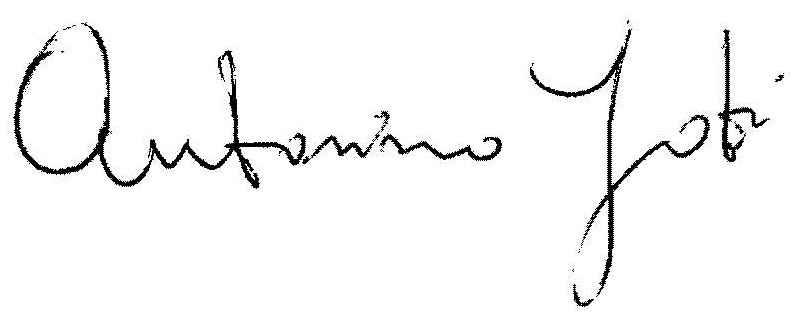 Antonino Foti